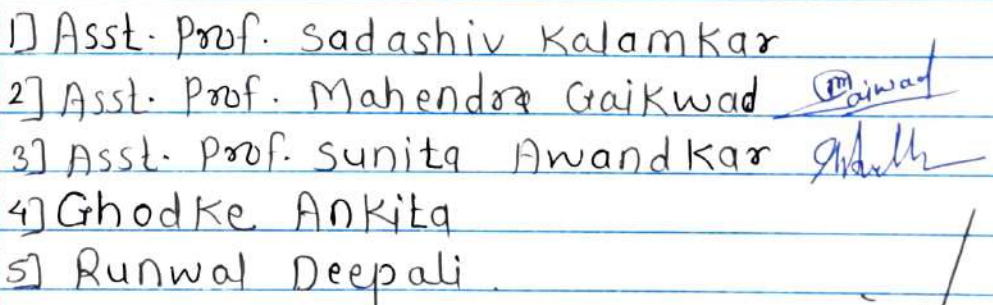 1] Asst. Prof. Sadashiv Kalamkar
2] Asst. Prof. Mahendra Gaikwad
3] Asst. Prof. Sunita Awandkar
4] Ghodke Ankita
5] Runwal Deepali.